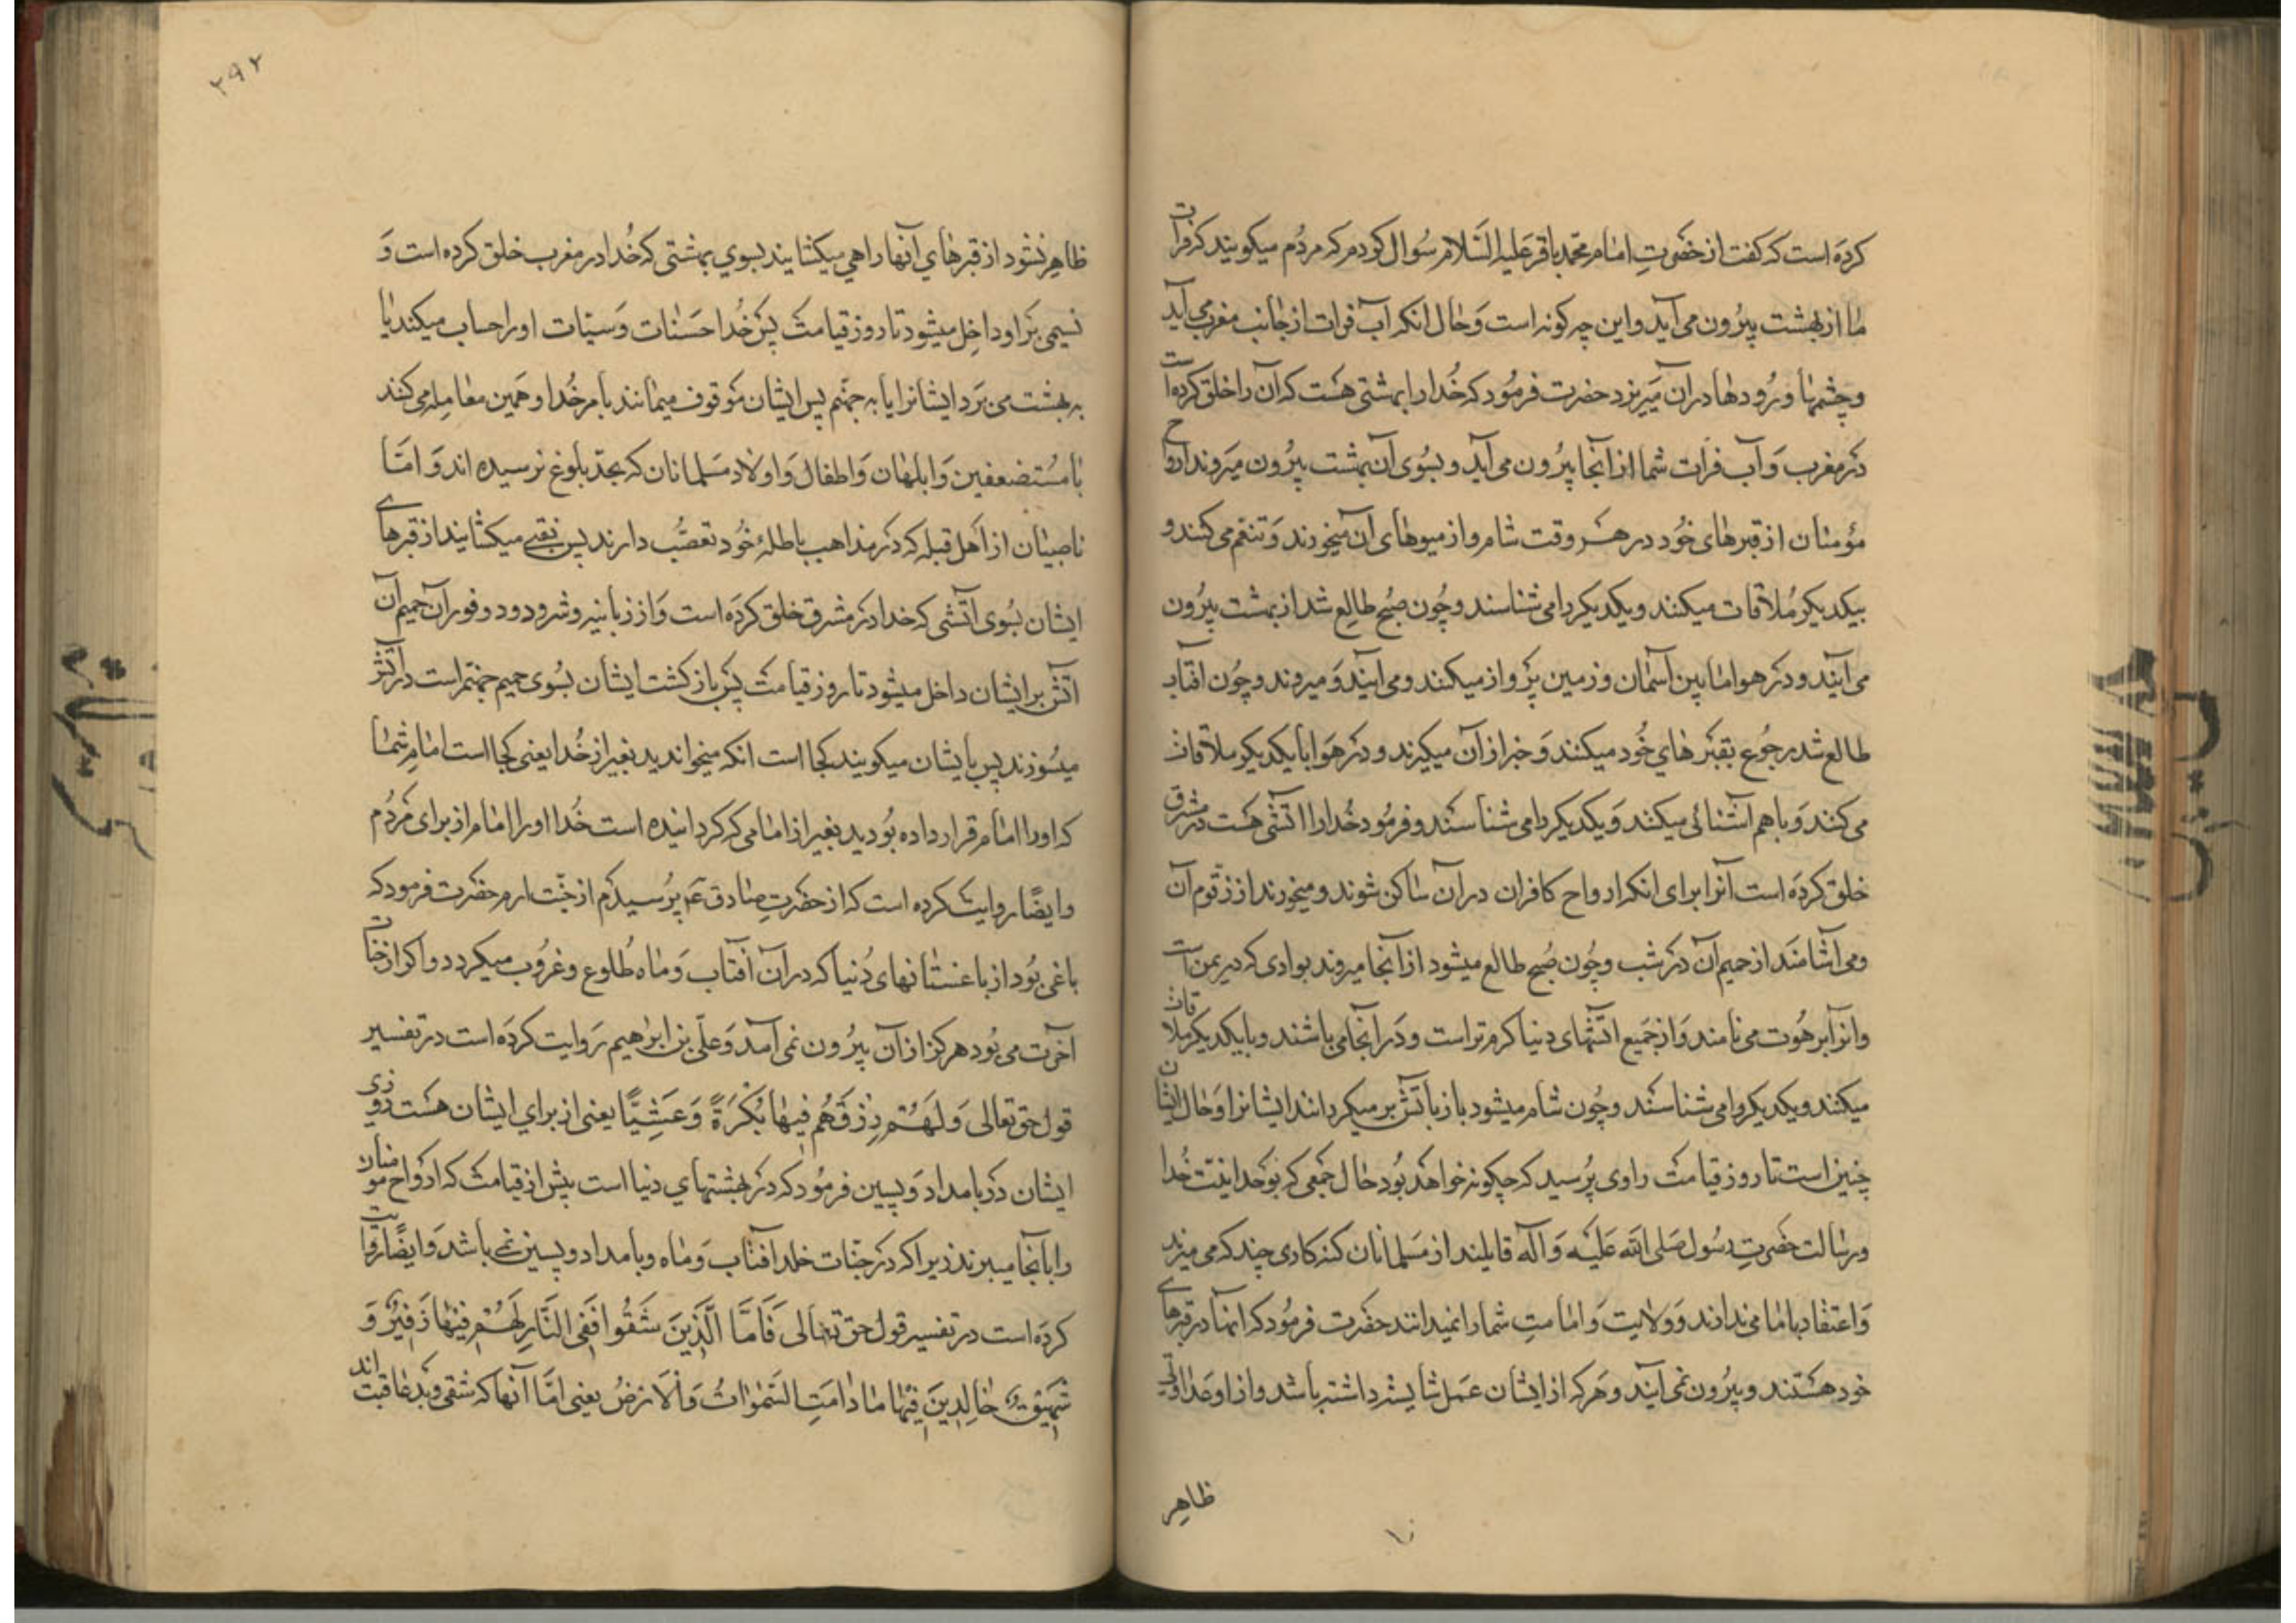 کرده است که گفت از حضرتِ امام محمد باقر علیه السَّلام سُوال کردم که مردُم میکویند که فرات
ما از بهشت بیرُون می آید و این چه کونه است وَ حال انکه آب فرات از جانب مغرب می آید
و چشمها و رُودها در آن میریزد حضرت فرمُود که خُدا را بهشتی هست که آن را خلق کرده است
در مغرب وَ آب فرات شما از آنجا بیرُون می آید و بسُوی آن بهشت بیرُون میروند ارواح
مؤمنان از قبرهای خُود در هر وقت شام و از میوهای آن میخورند وَ تنعّم می کنند و
بیکدیکر مُلاقات میکنند و یکدیکر را می شناسند و چُون صُبح طالع شد از بهشت بیرُون
می آیند و در هوا مابین آسمان و زمین پرواز میکنند و می آیند وَ میروند و چُون افتاب
طالع شد رجُوع بقبر های خُود میکنند وَ خبر از آن میکیرند و در هَوا با یکدیکر ملاقات
می کنند وَ با هم اشنائی میکنند وَ یکدیکر را می شناسند و فرمُود خُدا را اتشی هست در مشرق
خلق کرده است آنرا برای انکه ارواح کافران در آن ساکن شوند و میخورند از زقّوم آن
و می اشامند از حمیم آن در شب و چُون صُبح طالع میشود از آنجا میروند بوادی که در یمن است
و انرا برهُوت می نامند وَ از جَمیع اتشهای دنیا کرم تر است و در آنجا می باشند و با یکدیکر ملاقات
میکنند و یکدیکر را می شناسند و چُون شام میشود باز باتش بر میکردانند ایشانرا وَ حال ایشان
چنین است تا روز قیامت راوی پُرسید که چکونه خواهد بُود حال جَمعی که بوَحدانیّت خُدا
و رسالت حضرتِ رسُول صَلی الله عَلیْه وَ آله قایلند از مسَلمانان کنه کاری چند که می میرند
وَ اعتقاد بامامی ندارند وَ ولایت وَ امامتِ شما را نمیدانند حضَرت فرمُود که اینها در قبرهای
خود هستند و بیرُون نمی آیند و هَر که از ایشان عمَل شایسته داشته باشد و از او عداوتی
ظاهِر
۲۹۲
ظاهِر نشود از قبرهای آنها راهی میکشایند بسوی بهشتی که خُدا در مغرب خلق کرده است وَ
نسیمی بَر او داخِل میشود تا روز قیامت پس خُدا حَسَنات وَ سیّئات او را حساب میکند یا
به بهشت می بَرد ایشانرا یا به جهنّم پس ایشان مَوقوف میمانند بامر خُدا و همین معامله می کنند
با مسُتضعفین وَ ابلهان وَ اطفال وَ اولاد مسَلمانان که بحدّ بلوغ نرسیده اند وَ امّا
ناصبیان از اَهل قبله که در مذاهب باطلهٔ خُود تعصُّب دارند پس نقبی میکشایند از قبرهای
ایشان بسُوی اتشی که خدا در مشرق خلق کرده است وَ از زبانیه و شرر و دود و فوران حمیم آن
اتش بر ایشان داخل میشود تا روز قیامت پس باز کشت ایشان بسُوی حمیم جهنّم است در آتش
میسُوزند پس بایشان میکویند کجا است انکه میخواندید بغیر از خُدا یعنی کجا است امامِ شما
که او را امام قرار داده بُودید بغیر از امامی که کردانیده است خُدا او را امام از برای مَردُم
و ایضًا روایت کرده است که از حضرتِ صادق ع پرُسیدم از جنّت ادم حضَرت فرمود که
باغی بُود از باغستانهای دُنیا که در آن آفتاب وَ ماه طُلوع و غروُب میکردد و اکر از جنّات
آخرت می بُود هرکز از آن بیرُون نمی آمد وَ علّی بن ابرهیم رَوایت کرده است در تفسیر
قول حق تعالی وَ لَهُمْ رِزْقُهُم فِیهَا بُکْرَةً وَ عَشِیًّا یعنی از برای ایشان هست روزی
ایشان در بامداد وَ پسین فرمُود که در بهشتهای دنیا است پیش از قیامت که ارَواح مومنان
را بآنجا میبرند زیرا که در جنّات خلد افتاب وَ ماه و بامداد و پسین نمی باشد وَ ایضًا روایت
کرده است در تفسیر قول حق تعالی فَاَمَّا الَّذِینَ شَقُوا فَفِی النَّارِ لَهُمْ فِیهَا زَفِیرٌ وَ
شَهِیقٌ خَالِدِینَ فِیهَا مَا دَامَتِ السَّمٰوَاتُ وَ الْاَرْضُ یعنی امّا آنها که شقی و بَد عاقبت اند